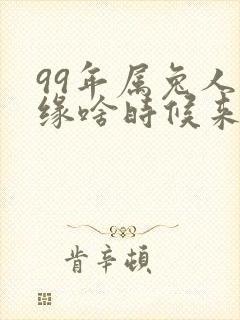 99年属兔人
缘啥时候来
肯辛顿